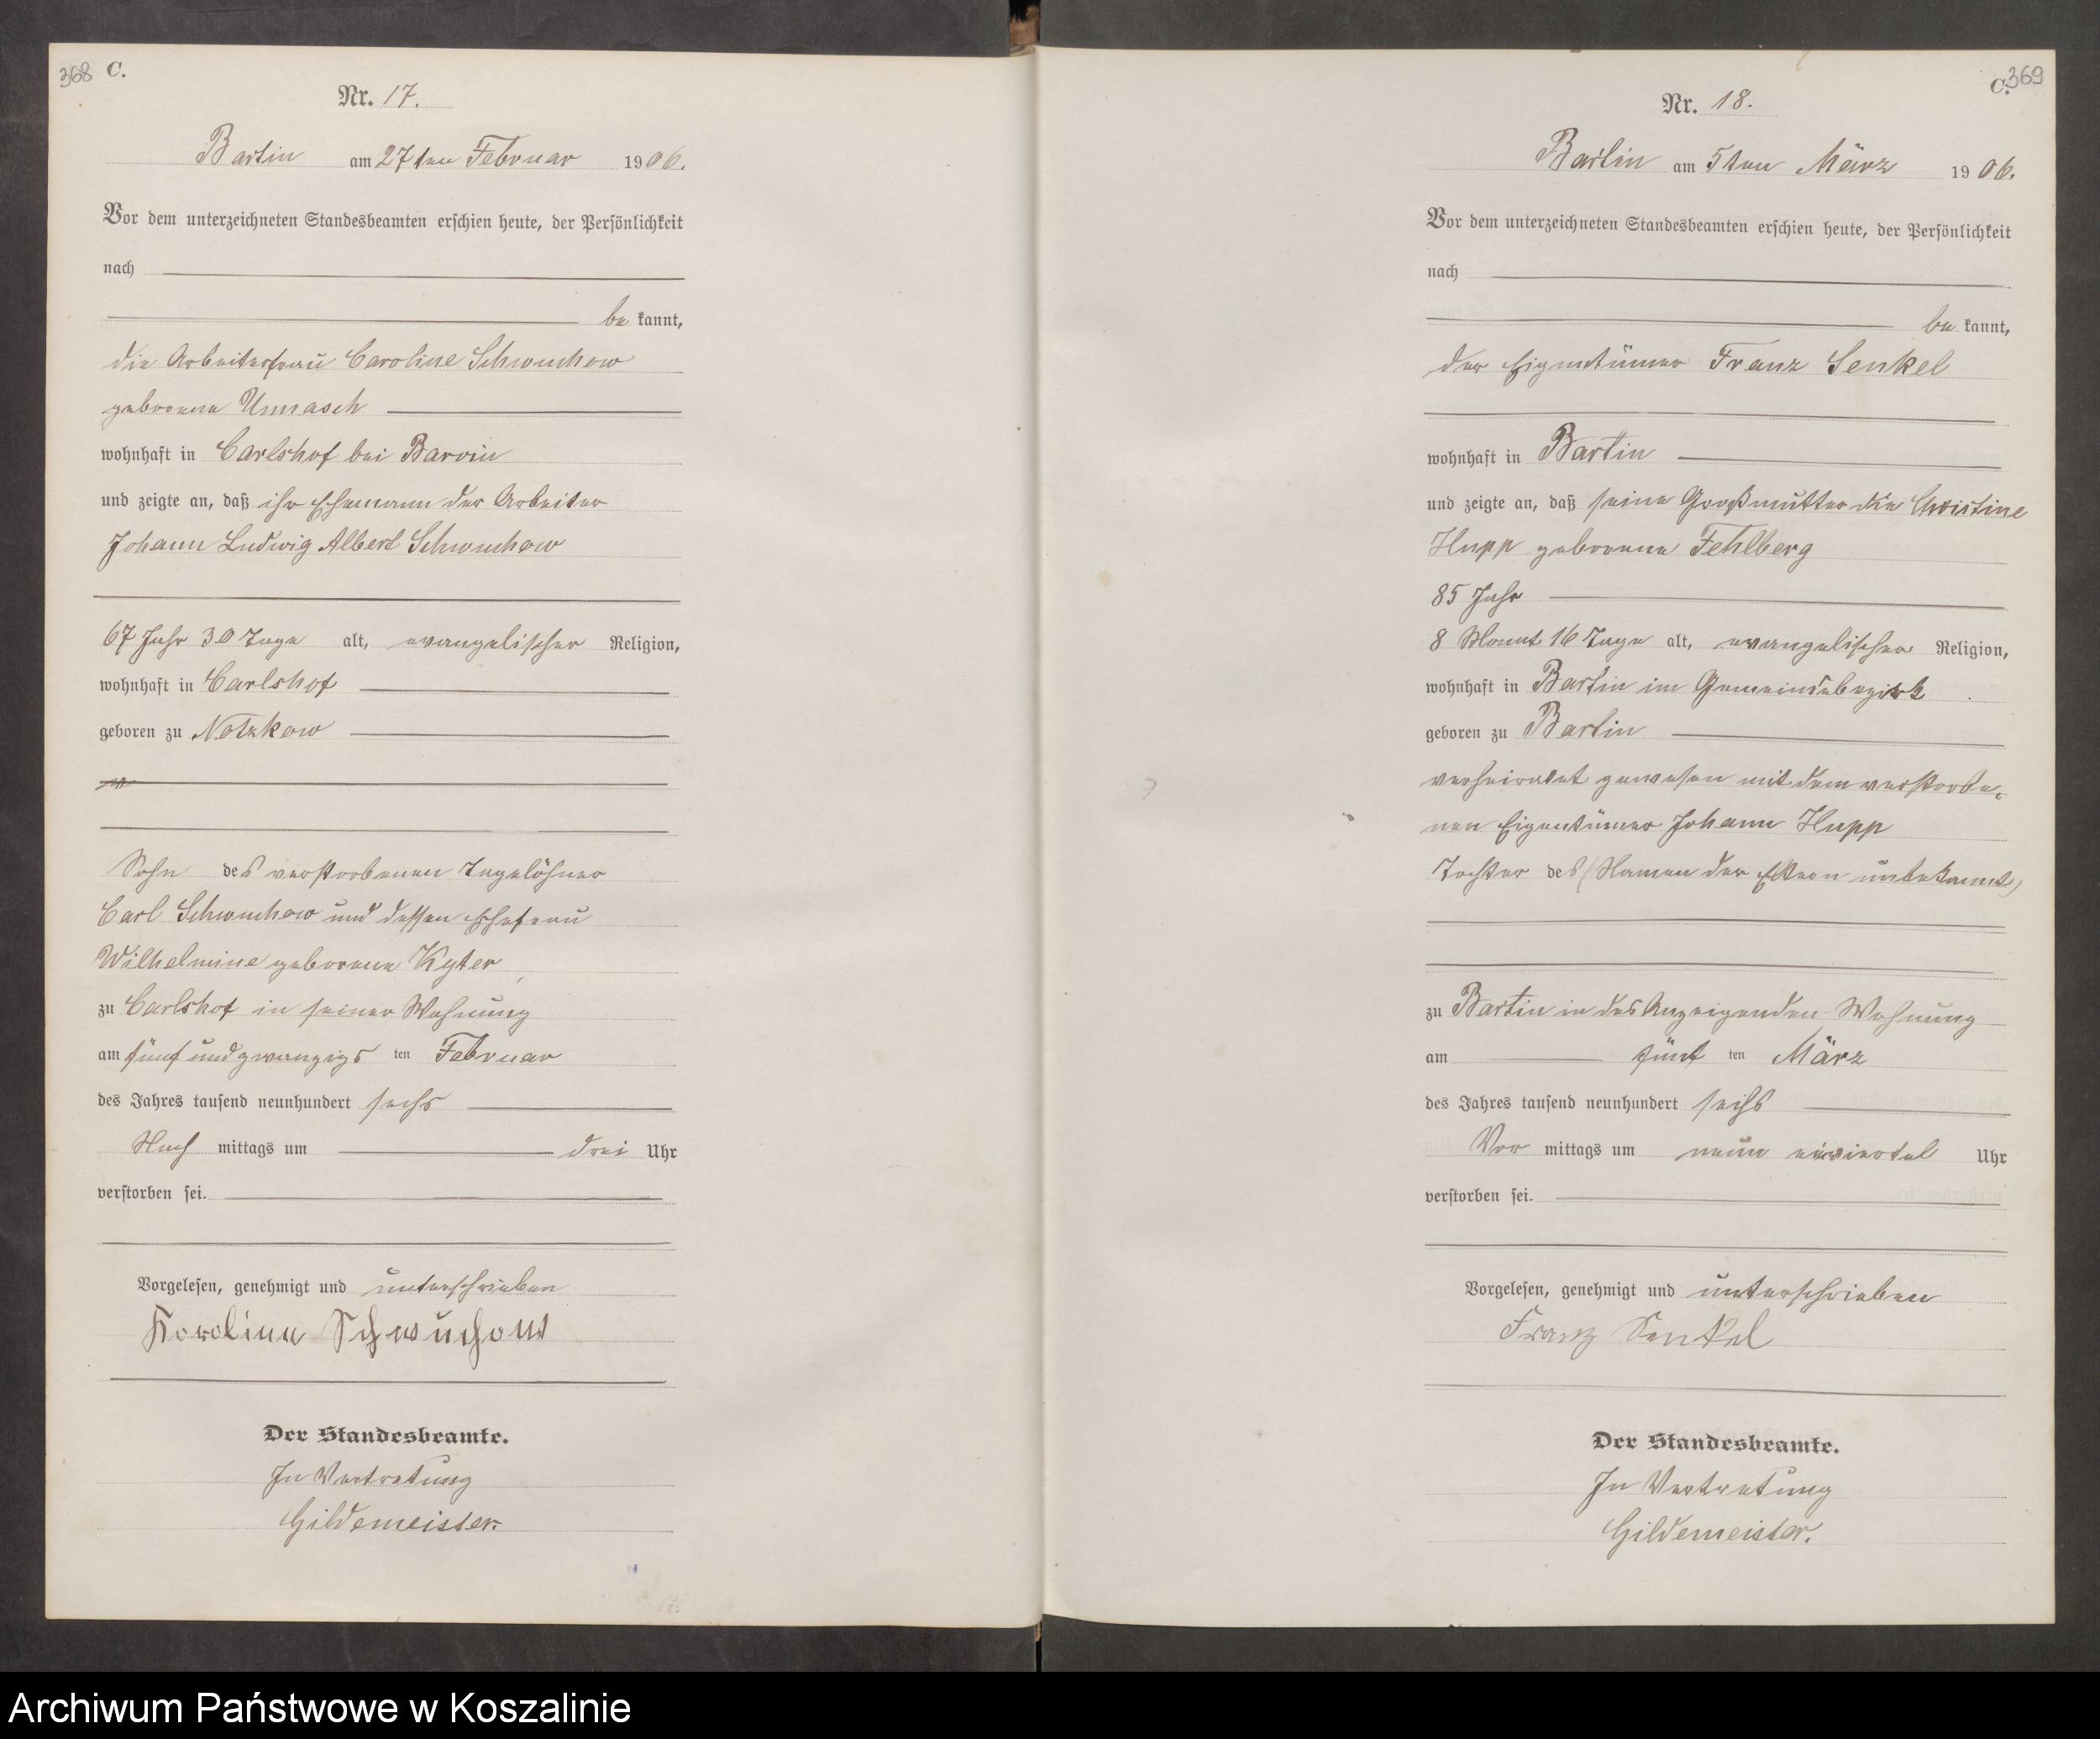 368 C.
Nr. 17.
Bartin am 27ten Februar 1906.
Vor dem unterzeichneten Standesbeamten erschien heute, der Persönlichkeit
nach
bekannt,
die Arbeiterfrau Caroline Schwuchow
geborene Unnasch
wohnhaft in Carlshof bei Barvin
und zeigte an, daß ihr Ehemann der Arbeiter
Johann Ludwig Albert Schwuchow
67 Jahr 30 Tage alt, evangelischer Religion,
wohnhaft in Carlshof
geboren zu Notzkow
Sohn des verstorbenen Tagelöhner
Carl Schwuchow und dessen Ehefrau
Wilhelmine geborene Kyter
zu Carlshof in seiner Wohnung
am fünfundzwanzigsten Februar
des Jahres tausend neunhundert sechs
Nach mittags um drei Uhr
verstorben sei.
Vorgelesen, genehmigt und unterschrieben
Karoline Schwuchow
Der Standesbeamte.
In Vertretung
Gildemeister.
C. 369
Nr. 18.
Bartin am 5ten März 1906.
Vor dem unterzeichneten Standesbeamten erschien heute, der Persönlichkeit
nach
bekannt,
der Eigentümer Franz Senkel
wohnhaft in Bartin
und zeigte an, daß seine Großmutter die Christine
Hupp geborene Fehlberg
85 Jahr
8 Monat 16 Tage alt, evangelischer Religion,
wohnhaft in Bartin im Gemeindebezirk
geboren zu Bartin
verheiratet gewesen mit dem verstorbe-
nen Eigentümer Johann Hupp
Tochter des (Namen der Eltern unbekannt)
zu Bartin in des Anzeigenden Wohnung
am fünften März
des Jahres tausend neunhundert sechs
Vor mittags um neun Uhr
verstorben sei.
Vorgelesen, genehmigt und unterschrieben
Franz Senkel
Der Standesbeamte.
In Vertretung
Gildemeister.
Archiwum Państwowe w Koszalinie